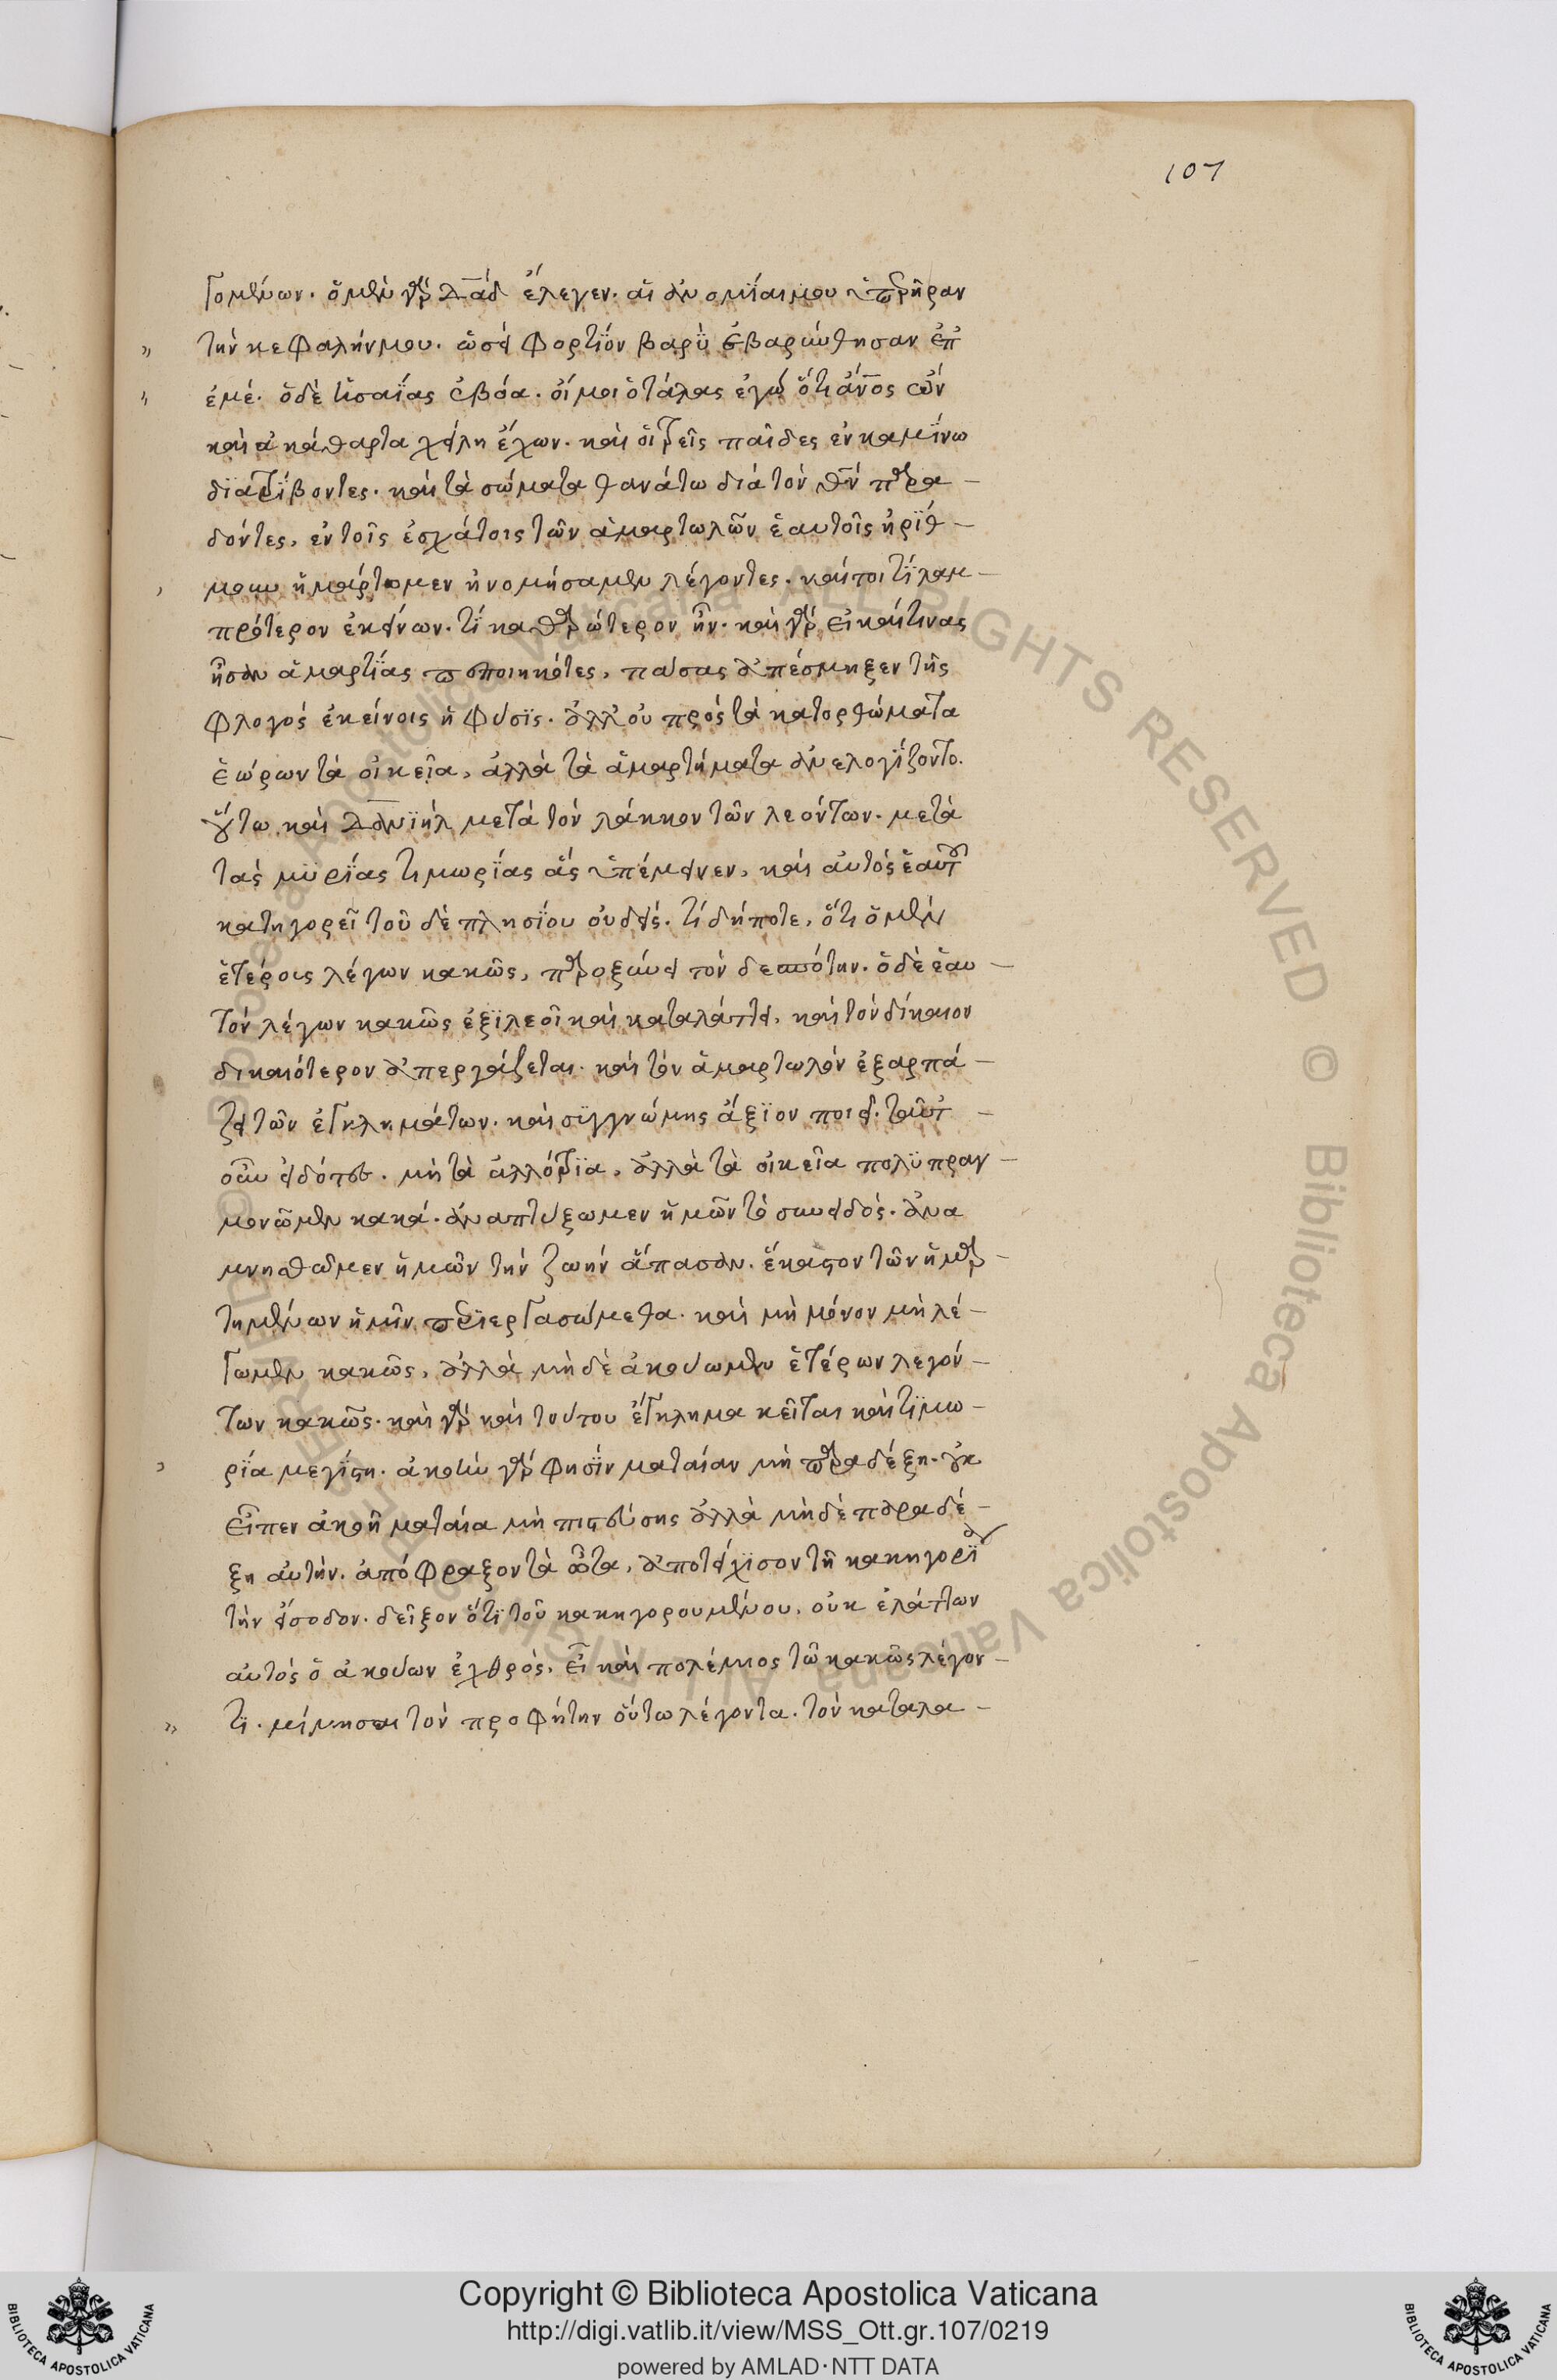 107
γομένων. ὁ μὲν γὰρ Δαδ ἔλεγεν. αἱ ἀνομίαι μου ὑπερῆραν
τὴν κεφαλήν μου. ὡσεὶ φορτίον βαρὺ ἐβαρύνθησαν ἐπ
ἐμέ. ὁ δὲ ἡσαΐας ἐβόα. οἴμοι ὁ τάλας ἐγὼ ὅτι ἄνος ὢν
καὶ ἀκάθαρτα χείλη ἔχων. καὶ οἱ τρεῖς παῖδες ἐν καμίνω
διατρίβοντες. καὶ τὰ σώματα θανάτω διὰ τὸν θν παρα-
δόντες, ἐν τοῖς ἐσχάτοις τῶν ἁμαρτωλῶν ἑαυτοῖς ἠρίθ-
μουν ἡμάρτομεν ἠνομήσαμεν λέγοντες. καίτοι τί λαμ-
πρότερον ἐκείνων. τί καθαρώτερον ἦν. καὶ γὰρ εἰ καί τινας
ἦσαν ἁμαρτίας πεποιηκότες, πάσας ἀπέσμηξεν τῆς
φλογὸς ἐκείνοις ἡ φύσις. ἀλλ' οὐ πρὸς τὰ κατορθώματα
ἑώρων τὰ οἰκεῖα, ἀλλὰ τὰ ἁμαρτήματα ἀνελογίζοντο.
οὕτω καὶ Δανιὴλ μετὰ τὸν λάκκον τῶν λεόντων. μετὰ
τὰς μυρίας τιμωρίας ἃς ὑπέμεινεν, καὶ αὐτὸς ἑαυτοῦ
κατηγορεῖ τοῦ δὲ πλησίου οὐδείς. τί δήποτε, ὅτι ὁ μὲν
ἑτέροις λέγων κακῶς, παροξύνει τὸν δεσπότην. ὁ δὲ ἑαυ-
τὸν λέγων κακῶς ἐξιλεοῖ καὶ καταλάττει, καὶ τὸν δίκαιον
δικαιότερον ἀπεργάζεται. καὶ τὸν ἁμαρτωλὸν ἐξαρπά-
ζει τῶν ἐγκλημάτων. καὶ συγγνώμης ἄξιον ποιεῖ. ταῦτ
οὖν εἰδότες. μὴ τὰ ἀλλότρια, ἀλλὰ τὰ οἰκεῖα πολυπραγ-
μονῶμεν κακά. ἀναπτύξωμεν ἡμῶν τὸ συνειδός. ἀνα
μνησθῶμεν ἡμῶν τὴν ζωὴν ἅπασαν. ἕκαστον τῶν ἡμαρ-
τημένων ἡμῖν περιεργασώμεθα. καὶ μὴ μόνον μὴ λέ-
γωμεν κακῶς, ἀλλὰ μὴ δὲ ἀκούωμεν ἑτέρων λεγόν-
των κακῶς. καὶ γὰρ καὶ τούτου ἔγκλημα κεῖται καὶ τιμω-
ρία μεγίστη. ἀκοὴν γὰρ φησὶν ματαίαν μὴ παραδέξη. οὐκ
εἶπεν ἀκοῆ ματαία μὴ πιστεύσης ἀλλὰ μὴ δὲ παραδέ-
ξη αὐτήν. ἀπόφραξον τὰ ὦτα, ἀποτείχισον τῆ κακηγορία
τὴν εἴσοδον. δεῖξον ὅτι τοῦ κακηγορουμένου, οὐκ ἐλάττων
αὐτὸς ὁ ἀκούων ἐχθρὸς, εἶ καὶ πολέμιος τῶ κακῶς λέγον-
τι. μίμησαι τὸν προφήτην οὕτω λέγοντα. τὸν καταλα-
Copyright © Biblioteca Apostolica Vaticana
http://digi.vatlib.it/view/MSS_Ott.gr.107/0219
powered by AMLAD·NTT DATA
BIBLIOTECA APOSTOLICA VATICANA
BIBLIOTECA APOSTOLICA VATICANA
© Biblioteca Apostolica Vaticana ALL RIGHTS RESERVED © Biblioteca Apostolica Vaticana ALL RIGHTS RESERVED